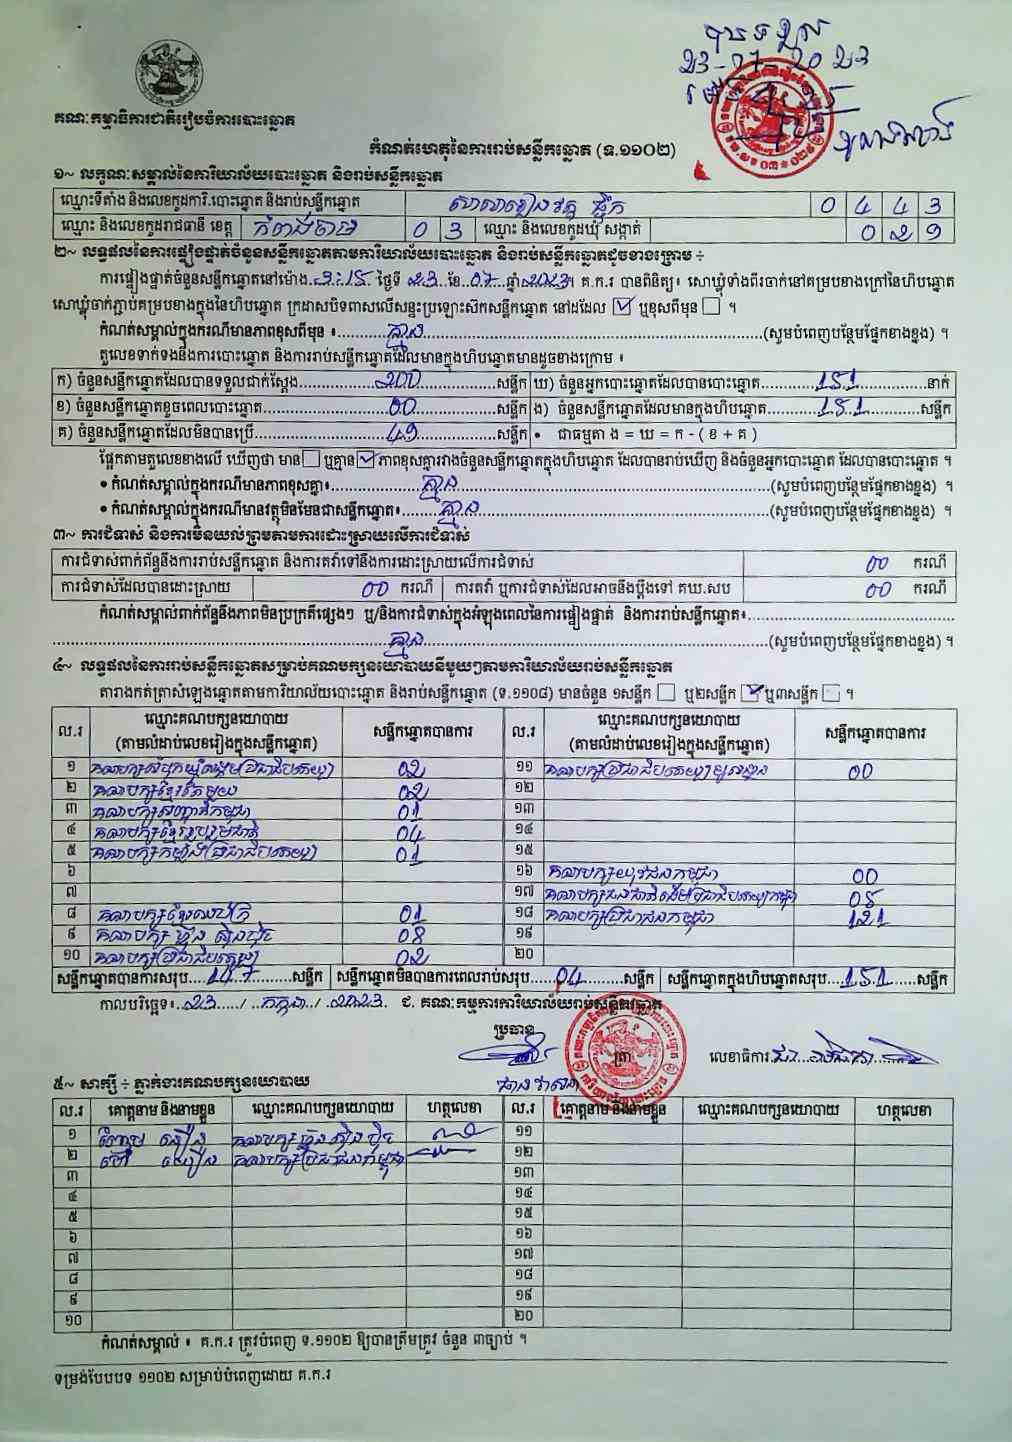 បានទទួល
23-07-2023
គណៈកម្មាធិការជាតិរៀបចំការបោះឆ្នោត
កំណត់ហេតុនៃការរាប់សន្លឹកឆ្នោត (ទ.១១០២)
១~ លក្ខណៈសម្គាល់នៃការិយាល័យបោះឆ្នោត និងរាប់សន្លឹកឆ្នោត
ឈ្មោះទីតាំង និងលេខកូដការិ.បោះឆ្នោត និងរាប់សន្លឹកឆ្នោត 0 4 4 3
ឈ្មោះ និងលេខកូដរាជធានី ខេត្ត កំពង់ចាម 0 3 ឈ្មោះ និងលេខកូដឃុំ សង្កាត់ 0 2 9
២~ លទ្ធផលនៃការផ្ទៀងផ្ទាត់ចំនួនសន្លឹកឆ្នោតតាមការិយាល័យបោះឆ្នោត និងរាប់សន្លឹកឆ្នោតដូចខាងក្រោម ÷
ការផ្ទៀងផ្ទាត់ចំនួនសន្លឹកឆ្នោតនៅម៉ោង 3:15 ថ្ងៃទី 23 ខែ 07 ឆ្នាំ 2023 ។ គ.ក.រ បានពិនិត្យ៖ សោឃ្លុំទាំងពីរចាក់នៅគម្របខាងក្រៅនៃហិបឆ្នោត
សោឃ្លុំចាក់ភ្ជាប់គម្របខាងក្នុងនៃហិបឆ្នោត ក្រដាសបិទពាសលើសន្ទះប្រឡោះស៊កសន្លឹកឆ្នោត នៅដដែល ☑ ឬខុសពីមុន ☐ ។
កំណត់សម្គាល់ក្នុងករណីមានភាពខុសពីមុន ៖ គ្មាន (សូមបំពេញបន្ថែមផ្នែកខាងខ្នង) ។
តួលេខទាក់ទងនឹងការបោះឆ្នោត និងការរាប់សន្លឹកឆ្នោតដែលមានក្នុងហិបឆ្នោតមានដូចខាងក្រោម ៖
ក) ចំនួនសន្លឹកឆ្នោតដែលបានទទួលជាក់ស្តែង 200 សន្លឹក ឃ) ចំនួនអ្នកបោះឆ្នោតដែលបានបោះឆ្នោត 151 នាក់
ខ) ចំនួនសន្លឹកឆ្នោតខូចពេលបោះឆ្នោត 00 សន្លឹក ង) ចំនួនសន្លឹកឆ្នោតដែលមានក្នុងហិបឆ្នោត 151 សន្លឹក
គ) ចំនួនសន្លឹកឆ្នោតដែលមិនបានប្រើ 49 សន្លឹក • ជាធម្មតា ង = ឃ = ក - ( ខ + គ )
ផ្អែកតាមតួលេខខាងលើ ឃើញថា មាន ☐ ឬគ្មាន ☑ ភាពខុសគ្នារវាងចំនួនសន្លឹកឆ្នោតក្នុងហិបឆ្នោត ដែលបានរាប់ឃើញ និងចំនួនអ្នកបោះឆ្នោត ដែលបានបោះឆ្នោត ។
• កំណត់សម្គាល់ក្នុងករណីមានភាពខុសគ្នា៖ គ្មាន (សូមបំពេញបន្ថែមផ្នែកខាងខ្នង) ។
• កំណត់សម្គាល់ក្នុងករណីមានវត្ថុមិនមែនជាសន្លឹកឆ្នោត៖ គ្មាន (សូមបំពេញបន្ថែមផ្នែកខាងខ្នង) ។
៣~ ការជំទាស់ និងការមិនយល់ព្រមតាមការដោះស្រាយលើការជំទាស់
ការជំទាស់ពាក់ព័ន្ធនឹងការរាប់សន្លឹកឆ្នោត និងការតវ៉ាទៅនឹងការដោះស្រាយលើការជំទាស់ 00 ករណី
ការជំទាស់ដែលបានដោះស្រាយ 00 ករណី ការតវ៉ា ឬការជំទាស់ដែលអាចនឹងប្តឹងទៅ គឃ.សប 00 ករណី
កំណត់សម្គាល់ពាក់ព័ន្ធនឹងភាពមិនប្រក្រតីផ្សេងៗ ឬ/និងការជំទាស់ក្នុងអំឡុងពេលនៃការផ្ទៀងផ្ទាត់ និងការរាប់សន្លឹកឆ្នោត៖
គ្មាន (សូមបំពេញបន្ថែមផ្នែកខាងខ្នង) ។
៤~ លទ្ធផលនៃការរាប់សន្លឹកឆ្នោតសម្រាប់គណបក្សនយោបាយនីមួយៗតាមការិយាល័យរាប់សន្លឹកឆ្នោត
តារាងកត់ត្រាសំឡេងឆ្នោតតាមការិយាល័យបោះឆ្នោត និងរាប់សន្លឹកឆ្នោត (ទ.១១០៨) មានចំនួន ១សន្លឹក ☐ ឬ២សន្លឹក ☑ ឬ៣សន្លឹក ☐ ។
ល.រ ឈ្មោះគណបក្សនយោបាយ (តាមលំដាប់លេខរៀងក្នុងសន្លឹកឆ្នោត) សន្លឹកឆ្នោតបានការ ល.រ ឈ្មោះគណបក្សនយោបាយ (តាមលំដាប់លេខរៀងក្នុងសន្លឹកឆ្នោត) សន្លឹកឆ្នោតបានការ
១ គណបក្សសំបុកឃ្មុំសង្គមប្រជាធិបតេយ្យ 02 ១១ គណបក្សប្រជាធិបតេយ្យមូលដ្ឋាន 00
២ គណបក្សខ្មែរតែមួយ 02 ១២
៣ គណបក្សសញ្ជាតិកម្ពុជា 01 ១៣
៤ គណបក្សខ្មែររួបរួមជាតិ 04 ១៤
៥ គណបក្សកម្លាំងប្រជាធិបតេយ្យ 01 ១៥
៦ ១៦ គណបក្សយុវជនកម្ពុជា 00
៧ ១៧ 05
៨ គណបក្សខ្មែរឈប់ក្រ 01 ១៨ គណបក្សប្រជាជនកម្ពុជា 121
៩ គណបក្សហ៊្វុនស៊ិនប៉ិច 08 ១៩
១០ គណបក្សប្រជាធិបតេយ្យ 02 ២០
សន្លឹកឆ្នោតបានការសរុប 147 សន្លឹក សន្លឹកឆ្នោតមិនបានការពេលរាប់សរុប 04 សន្លឹក សន្លឹកឆ្នោតក្នុងហិបឆ្នោតសរុប 151 សន្លឹក
កាលបរិច្ឆេទ៖ 23 / កក្កដា / 2023 ជ. គណៈកម្មការការិយាល័យរាប់សន្លឹកឆ្នោត
ប្រធាន
ត្រា លេខាធិការ
៥~ សាក្សី ÷ ភ្នាក់ងារគណបក្សនយោបាយ
ល.រ គោត្តនាម និងនាមខ្លួន ឈ្មោះគណបក្សនយោបាយ ហត្ថលេខា ល.រ គោត្តនាម និងនាមខ្លួន ឈ្មោះគណបក្សនយោបាយ ហត្ថលេខា
១ គណបក្សហ៊្វុនស៊ិនប៉ិច ១១
២ គណបក្សប្រជាជនកម្ពុជា ១២
៣ ១៣
៤ ១៤
៥ ១៥
៦ ១៦
៧ ១៧
៨ ១៨
៩ ១៩
១០ ២០
កំណត់សម្គាល់ ៖ គ.ក.រ ត្រូវបំពេញ ទ.១១០២ ឱ្យបានត្រឹមត្រូវ ចំនួន ៣ច្បាប់ ។
ទម្រង់បែបបទ ១១០២ សម្រាប់បំពេញដោយ គ.ក.រ